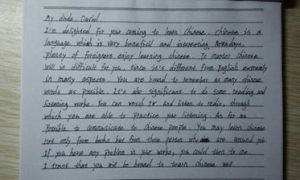 My dear
I'm delighted for your coming to learn Chinese. Chinese is a
language which is very beautiful and interesting. Nowadays,
plenty of foreigners enjoy learning Chinese. It makes Chinese
is difficult for you, since it's different from English extremely
in many aspects. You are bound to remember as many Chinese
words as possible. It's also significant to do some reading and
listening works. You can watch TV and listen to radio, through
which you are able to practice your listening. As for as
possible to communicate to Chinese people. You may learn Chinese
not only from books but from these person who are around you
If you have any problem in your works, you could turn to me
I trust that you will be bound to learn Chinese well